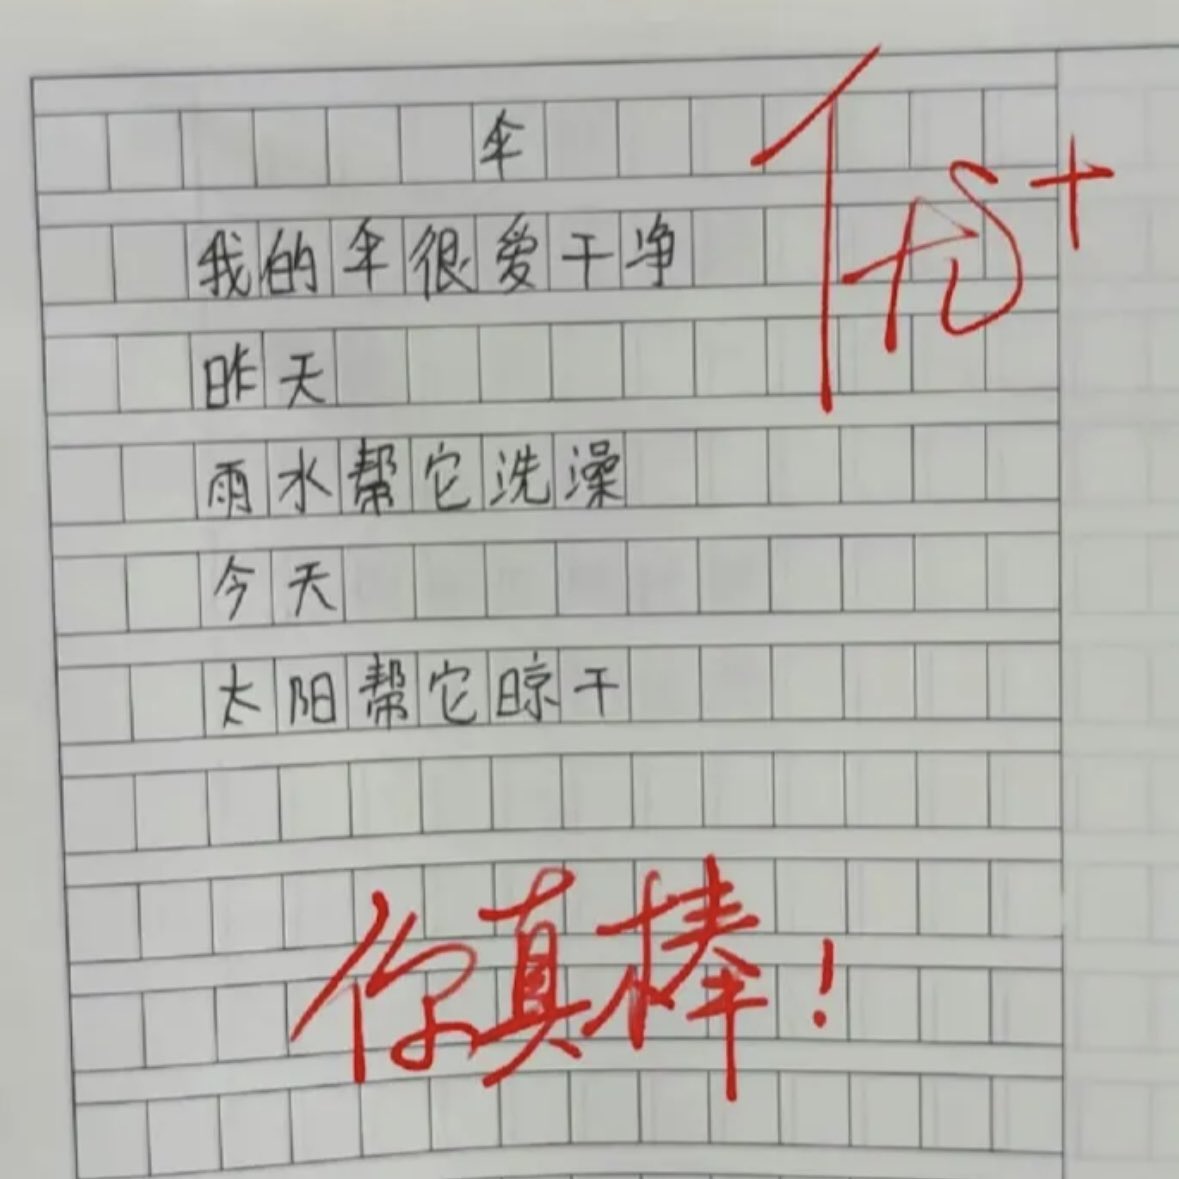 伞
优+
我的伞很爱干净
昨天
雨水帮它洗澡
今天
太阳帮它晾干
你真棒！